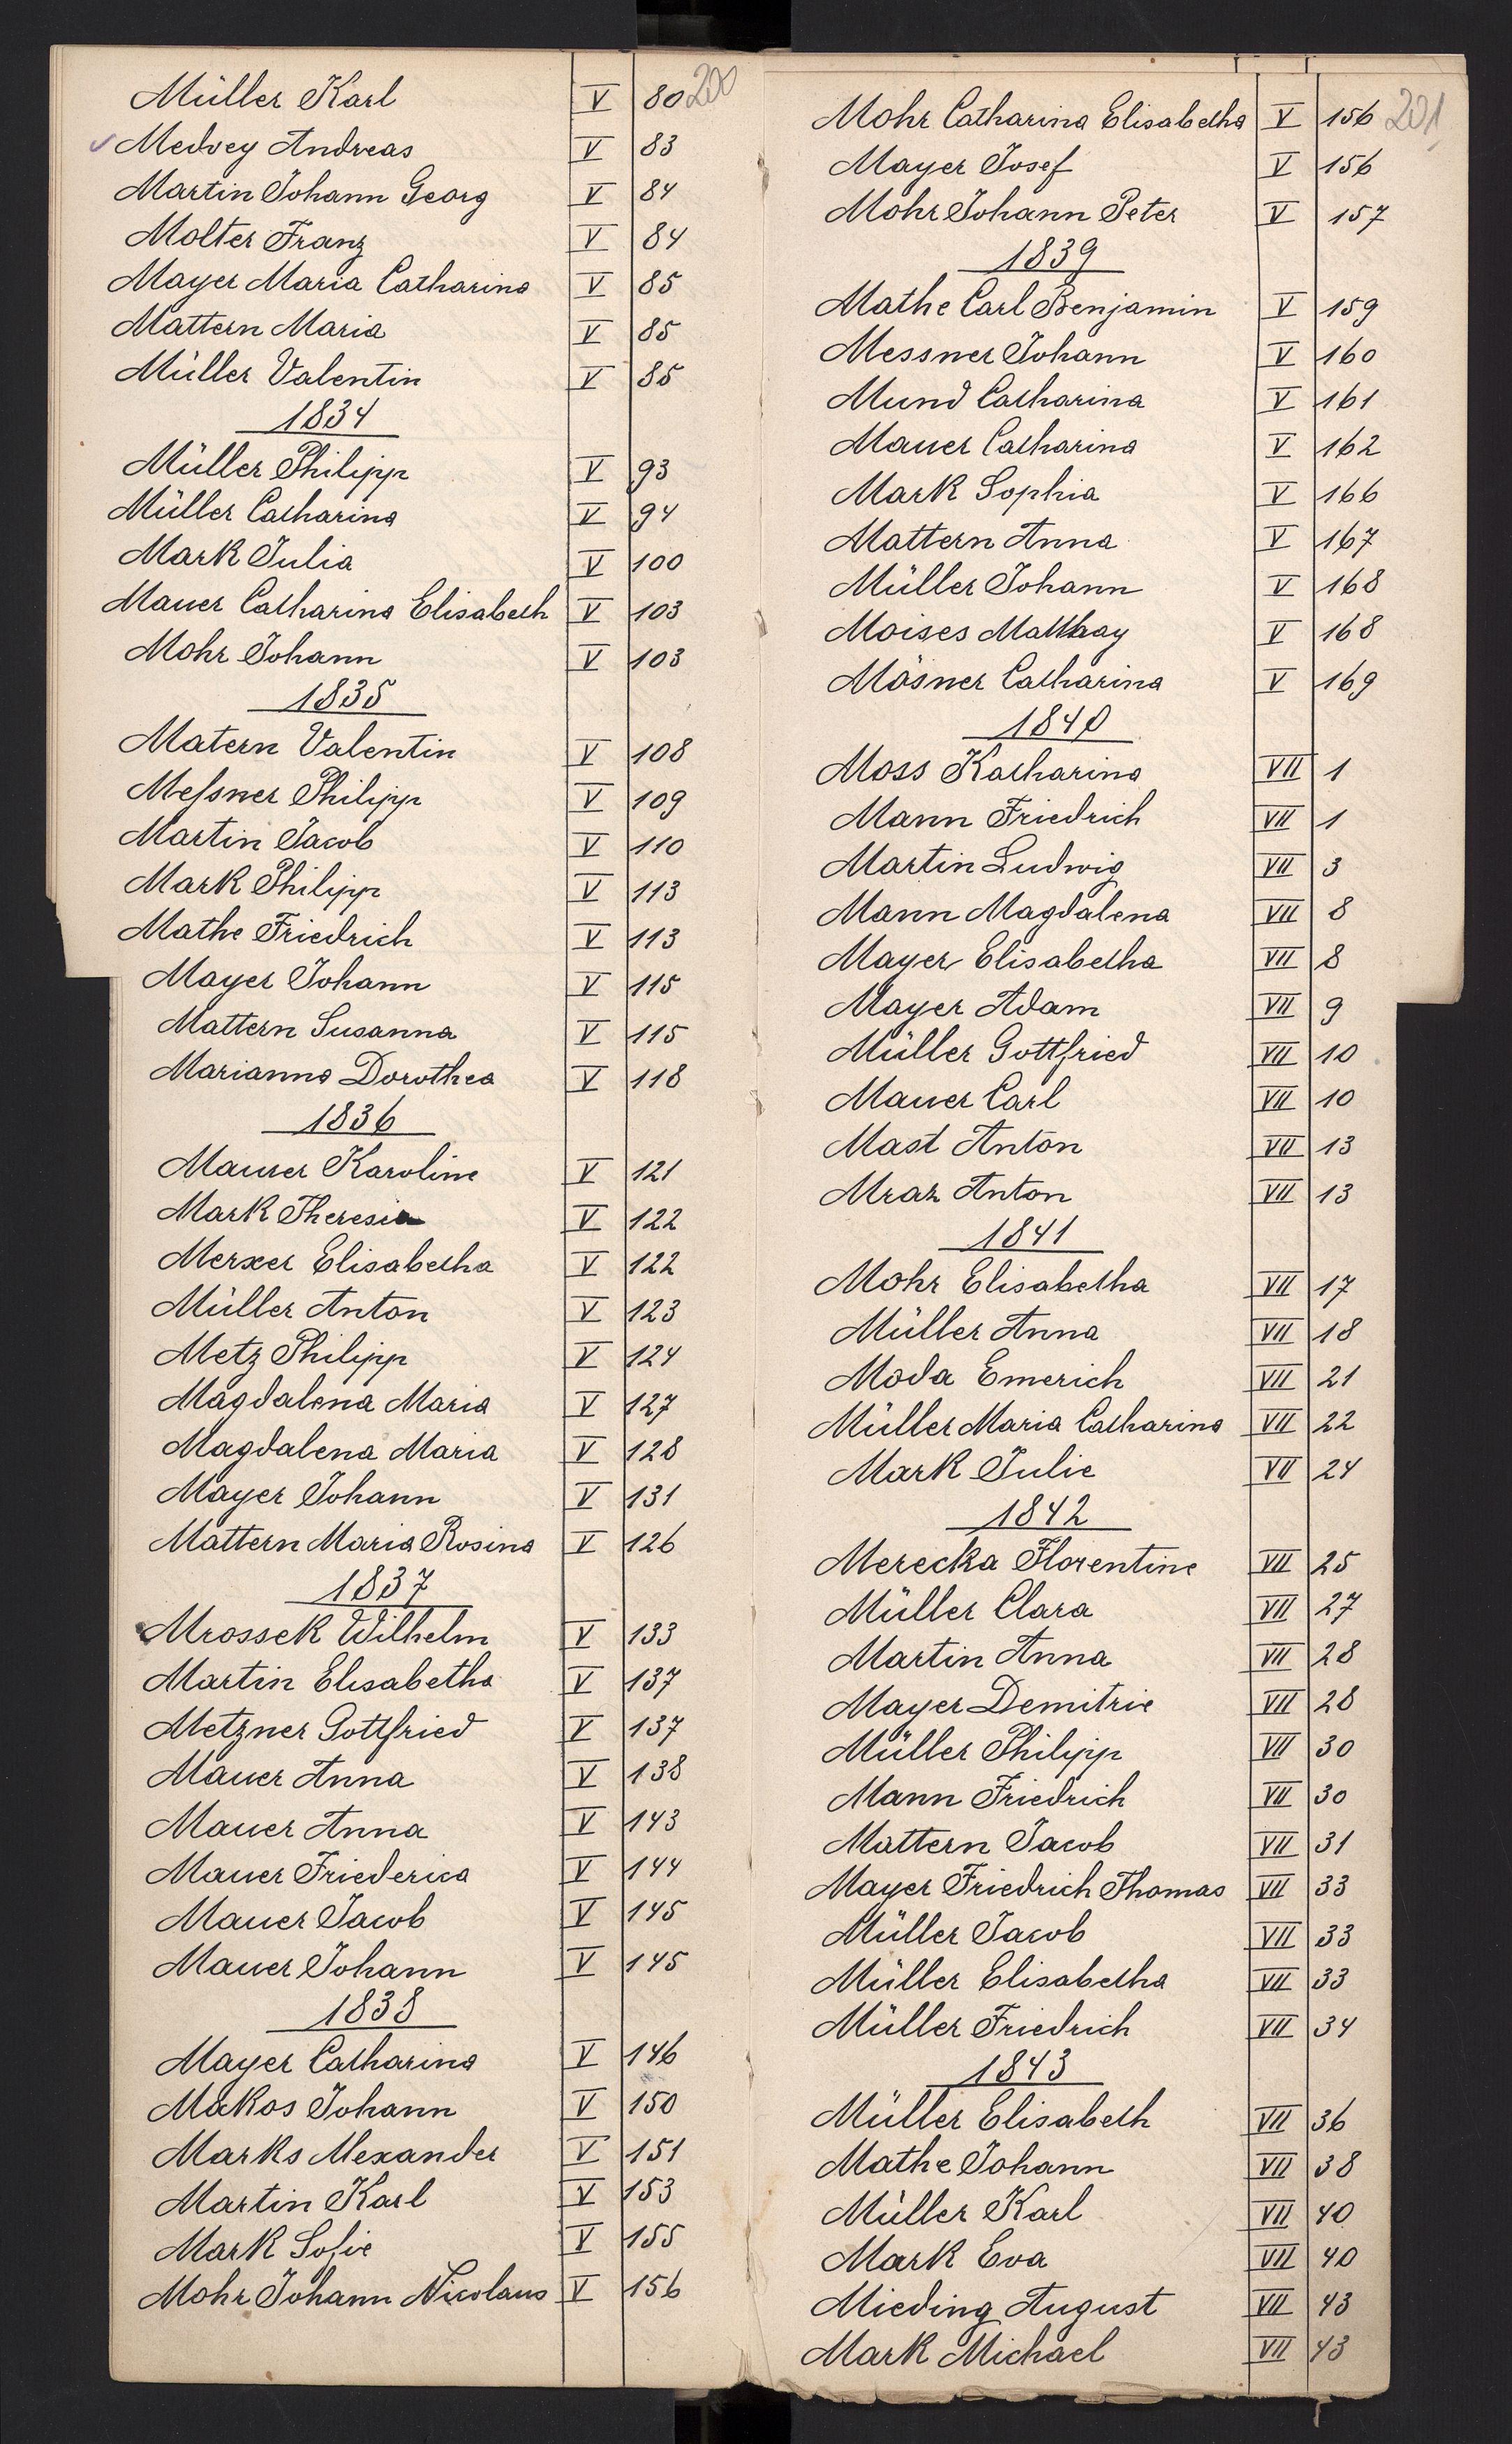 Müller Karl V 80 200
Medvey Andreas V 83
Martin Johann Georg V 84
Molter Franz V 84
Mayer Maria Catharina V 85
Mattern Maria V 85
Müller Valentin V 85
1834
Müller Philipp V 93
Müller Catharina V 94
Mark Julia V 100
Mauer Catharina Elisabeth V 103
Mohr Johann V 103
1835
Matern Valentin V 108
Meſsner Philipp V 109
Martin Jacob V 110
Mark Philipp V 113
Mathe Friedrich V 113
Mayer Johann V 115
Mattern Susanna V 115
Marianna Dorothea V 118
1836
Maurer Karoline V 121
Mark Theresia V 122
Merxer Elisabetha V 122
Müller Anton V 123
Metz Philipp V 124
Magdalena Maria V 127
Magdalena Maria V 128
Mayer Johann V 131
Mattern Maria Rosina V 126
1837
Mrossek Wilhelm V 133
Martin Elisabetha V 137
Metzner Gottfried V 137
Mauer Anna V 138
Mauer Anna V 143
Mauer Friederica V 144
Mauer Jacob V 145
Mauer Johann V 145
1838
Mayer Catharina V 146
Makos Johann V 150
Marks Alexander V 151
Martin Karl V 153
Mark Sofie V 155
Mohr Johann Nicolaus V 156
Mohr Catharina Elisabetha V 156 201
Mayer Josef V 156
Mohr Johann Peter V 157
1839
Mathe Carl Benjamin V 159
Messner Johann V 160
Mund Catharina V 161
Mauer Catharina V 162
Mark Sophia V 166
Mattern Anna V 167
Müller Johann V 168
Moises Matthay V 168
Mösner Catharina V 169
1840
Moss Katharina VII 1
Mann Friedrich VII 1
Martin Ludwig VII 3
Mann Magdalena VII 8
Mayer Elisabetha VII 8
Mayer Adam VII 9
Müller Gottfried VII 10
Mauer Carl VII 10
Mast Anton VII 13
Mraz Anton VII 13
1841
Mohr Elisabetha VII 17
Müller Anna VII 18
Moda Emerich VII 21
Müller Maria Catharina VII 22
Mark Julie VII 24
1842
Merecka Florentine VII 25
Müller Clara VII 27
Martin Anna VII 28
Mayer Demitrie VII 28
Müller Philipp VII 30
Mann Friedrich VII 30
Mattern Jacob VII 31
Mayer Friedrich Thomas VII 33
Müller Jacob VII 33
Müller Elisabetha VII 33
Müller Friedrich VII 34
1843
Müller Elisabeth VII 36
Mathe Johann VII 38
Müller Karl VII 40
Mark Eva VII 40
Mieding August VII 43
Mark Michael VII 43